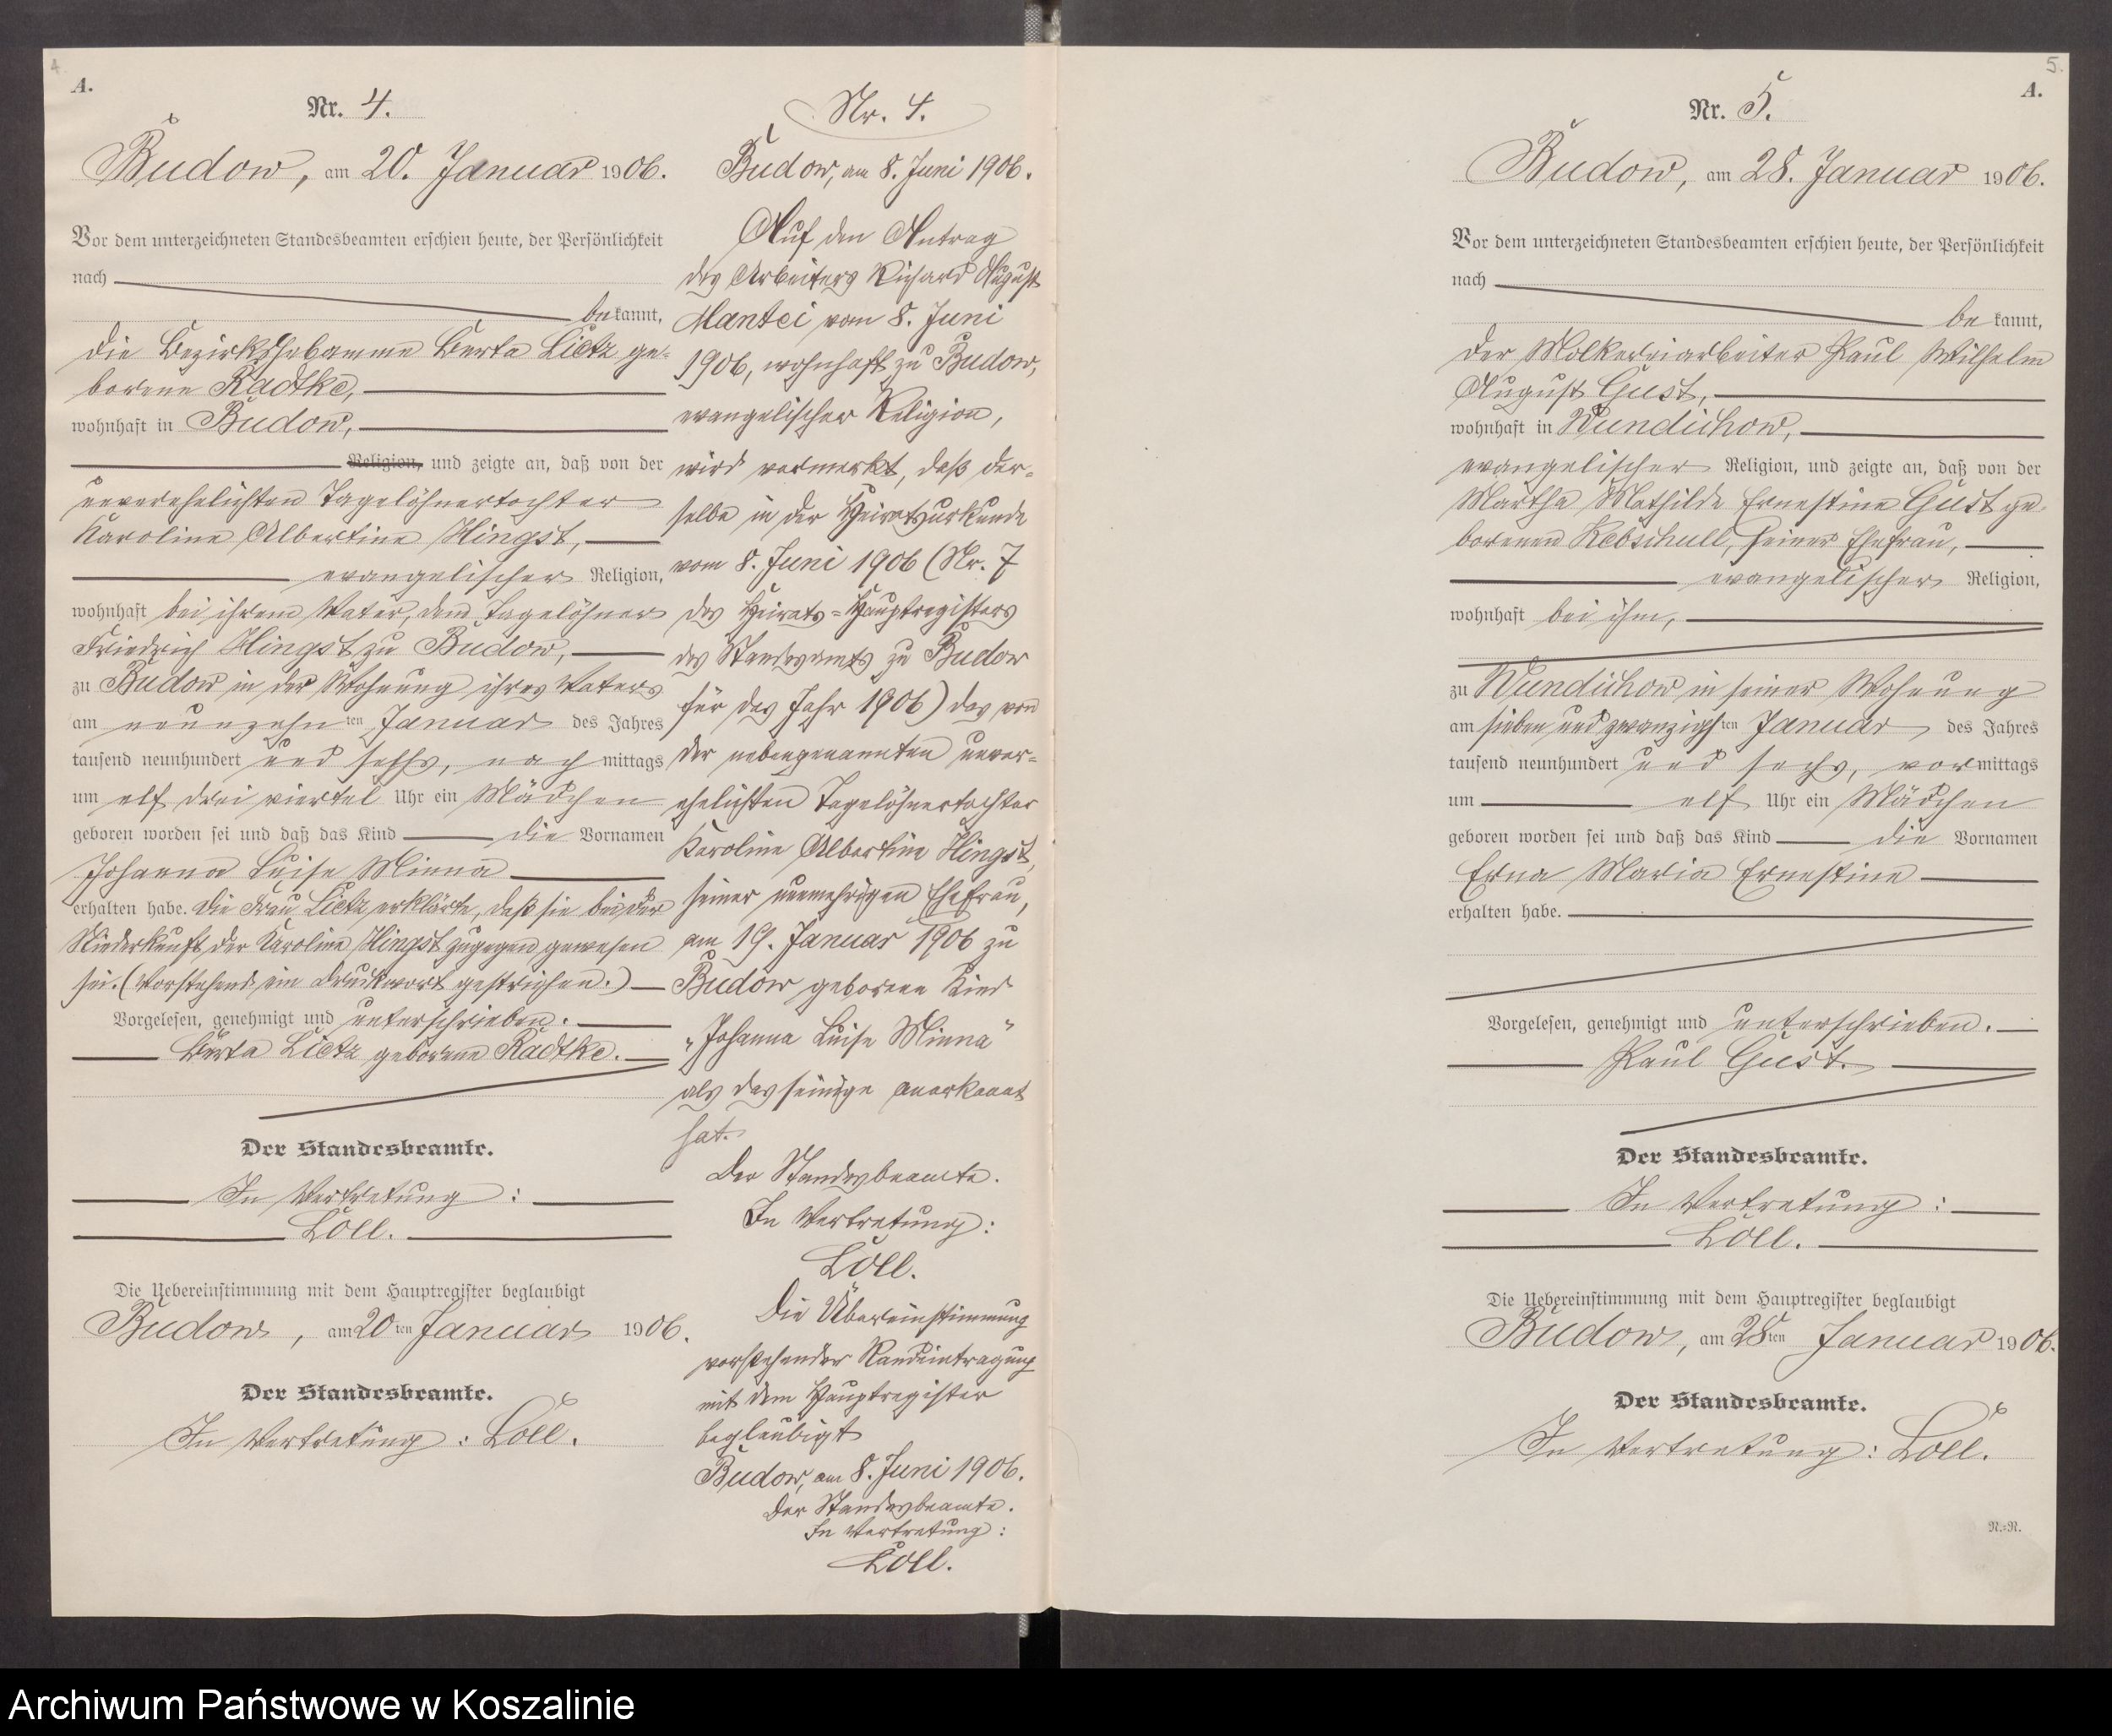 4
A.
Nr. 4.
Budow, am 20. Januar 1906.
Vor dem unterzeichneten Standesbeamten erschien heute, der Persönlichkeit
nach
bekannt,
die Bezirkshebamme Berta Lietz ge-
borene Radtke,
wohnhaft in Budow,
Religion, und zeigte an, daß von der
unverehelichten Tagelöhnertochter
Karoline Albertine Hingst,
evangelischer Religion,
wohnhaft bei ihrem Vater, dem Tagelöhner
Friedrich Hingst zu Budow,
zu Budow in der Wohnung ihres Vaters
am neunzehnten Januar des Jahres
tausend neunhundert und sechs, nachmittags
um elf drei viertel Uhr ein Mädchen
geboren worden sei und daß das Kind die Vornamen
Johanna Luise Minna
erhalten habe. Die Frau Lietz erklärte, daß sie bei der
Niederkunft der Karoline Hingst zugegen gewesen
sei. (Vorstehend ein Druckwort gestrichen.)
Vorgelesen, genehmigt und unterschrieben.
Berta Lietz geborene Radtke.
Der Standesbeamte.
In Vertretung:
Löll.
Die Uebereinstimmung mit dem Hauptregister beglaubigt
Budow, am 20ten Januar 1906.
Der Standesbeamte.
In Vertretung: Löll.
Nr. 4.
Budow, am 8. Juni 1906.
Auf den Antrag
des Arbeiters Richard August
Mantei vom 8. Juni
1906, wohnhaft zu Budow,
evangelischer Religion,
wird vermerkt, daß der-
selbe in der Heiratsurkunde
vom 8. Juni 1906 (Nr. 7
des Heirats-Hauptregisters
des Standesamts zu Budow
für das Jahr 1906) das von
der nebengenannten unver-
ehelichten Tagelöhnertochter
Karoline Albertine Hingst,
seiner nunmehrigen Ehefrau,
am 19. Januar 1906 zu
Budow geborene Kind
„Johanna Luise Minna"
als das seinige anerkannt
hat.
Der Standesbeamte.
In Vertretung:
Löll.
Die Übereinstimmung
vorstehender Randeintragung
mit dem Hauptregister
beglaubigt
Budow, am 8. Juni 1906.
Der Standesbeamte.
In Vertretung:
Löll.
5.
A.
Nr. 5.
Budow, am 28. Januar 1906.
Vor dem unterzeichneten Standesbeamten erschien heute, der Persönlichkeit
nach
bekannt,
der Molkereiarbeiter Paul Wilhelm
August Gust,
wohnhaft in Wundichow,
evangelischer Religion, und zeigte an, daß von der
Martha Mathilde Ernestine Gust ge-
borenen Rebschull, seiner Ehefrau,
evangelischer Religion,
wohnhaft bei ihm,
zu Wundichow in seiner Wohnung
am sieben und zwanzigsten Januar des Jahres
tausend neunhundert und sechs, vormittags
um elf Uhr ein Mädchen
geboren worden sei und daß das Kind die Vornamen
Erna Maria Ernestine
erhalten habe.
Vorgelesen, genehmigt und unterschrieben.
Paul Gust.
Der Standesbeamte.
In Vertretung:
Löll.
Die Uebereinstimmung mit dem Hauptregister beglaubigt
Budow, am 28ten Januar 1906.
Der Standesbeamte.
In Vertretung: Löll.
N.=N.
Archiwum Państwowe w Koszalinie